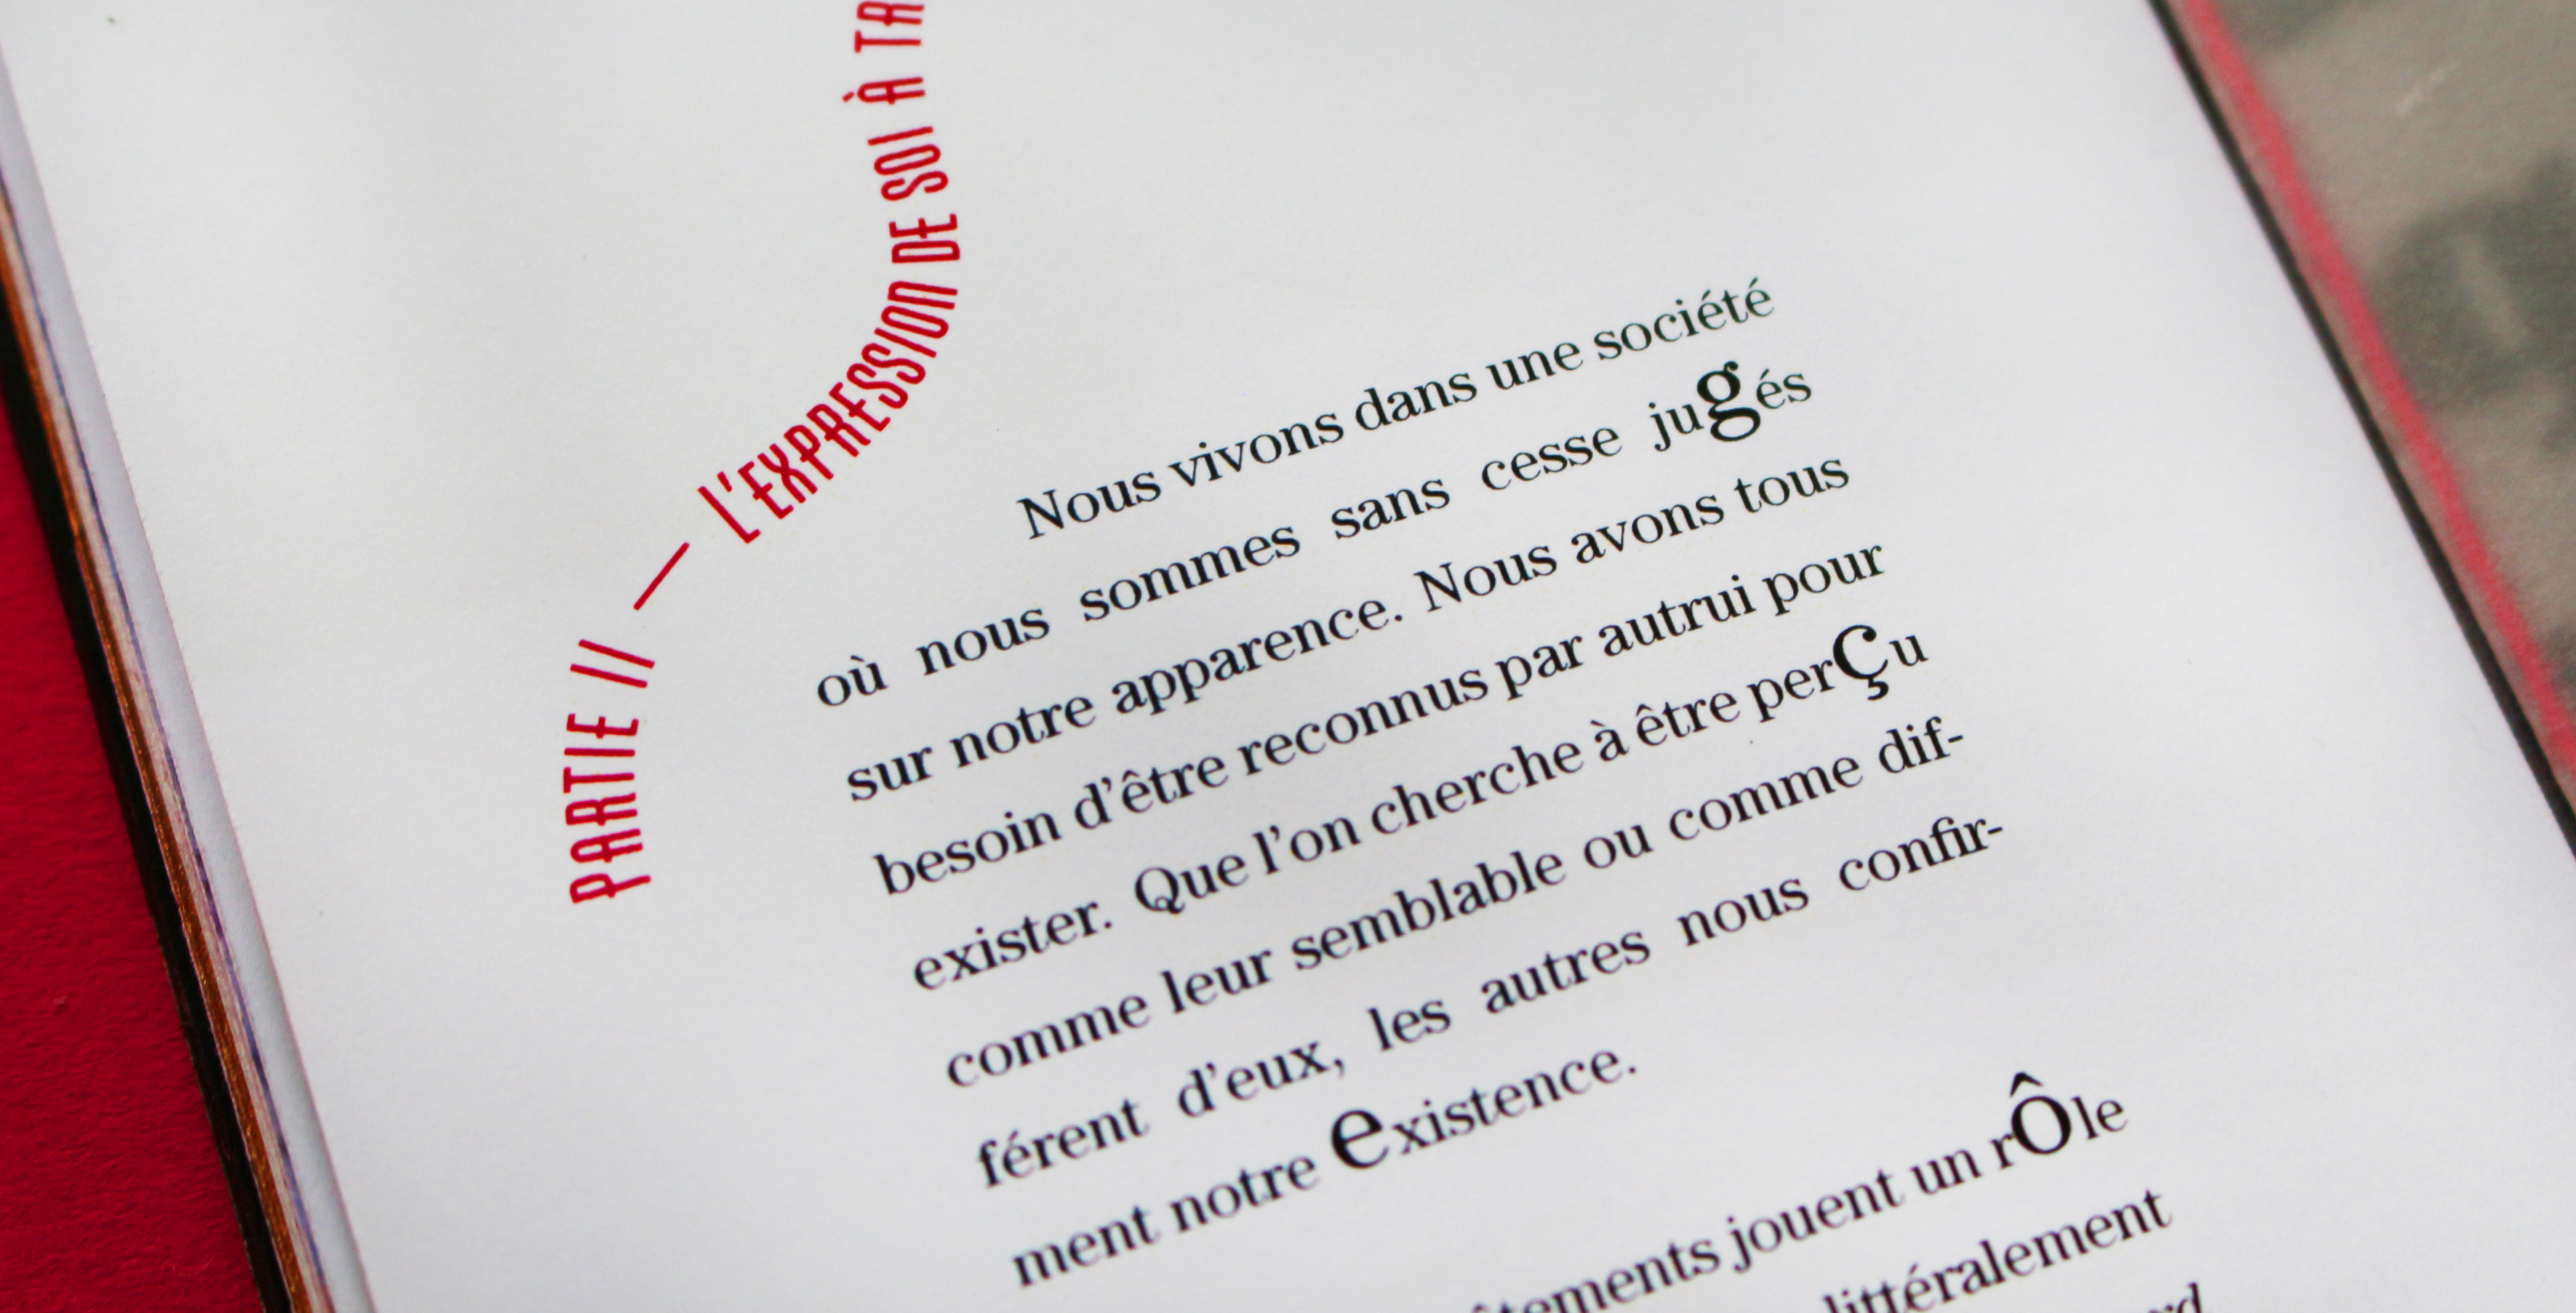 PARTIE II — L'EXPRESSION DE SOI À TR
Nous vivons dans une société
où nous sommes sans cesse jugés
sur notre apparence. Nous avons tous
besoin d'être reconnus par autrui pour
exister. Que l'on cherche à être perÇu
comme leur semblable ou comme dif-
férent d'eux, les autres nous confir-
ment notre existence.
tements jouent un rÔle
littéralement